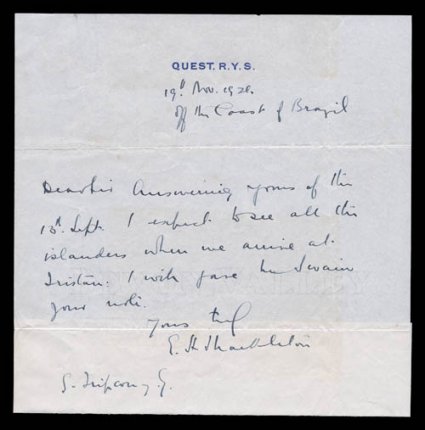 QUEST, R.Y.S.
19th Nov. 1921.
off the Coast of Brazil
Dear Sir Answering yours of the
13th Sept. I expect to see all the
islanders when we arrive at
Tristan. I will give Mr Swain
your note.
Yours truly
E. H. Shackleton